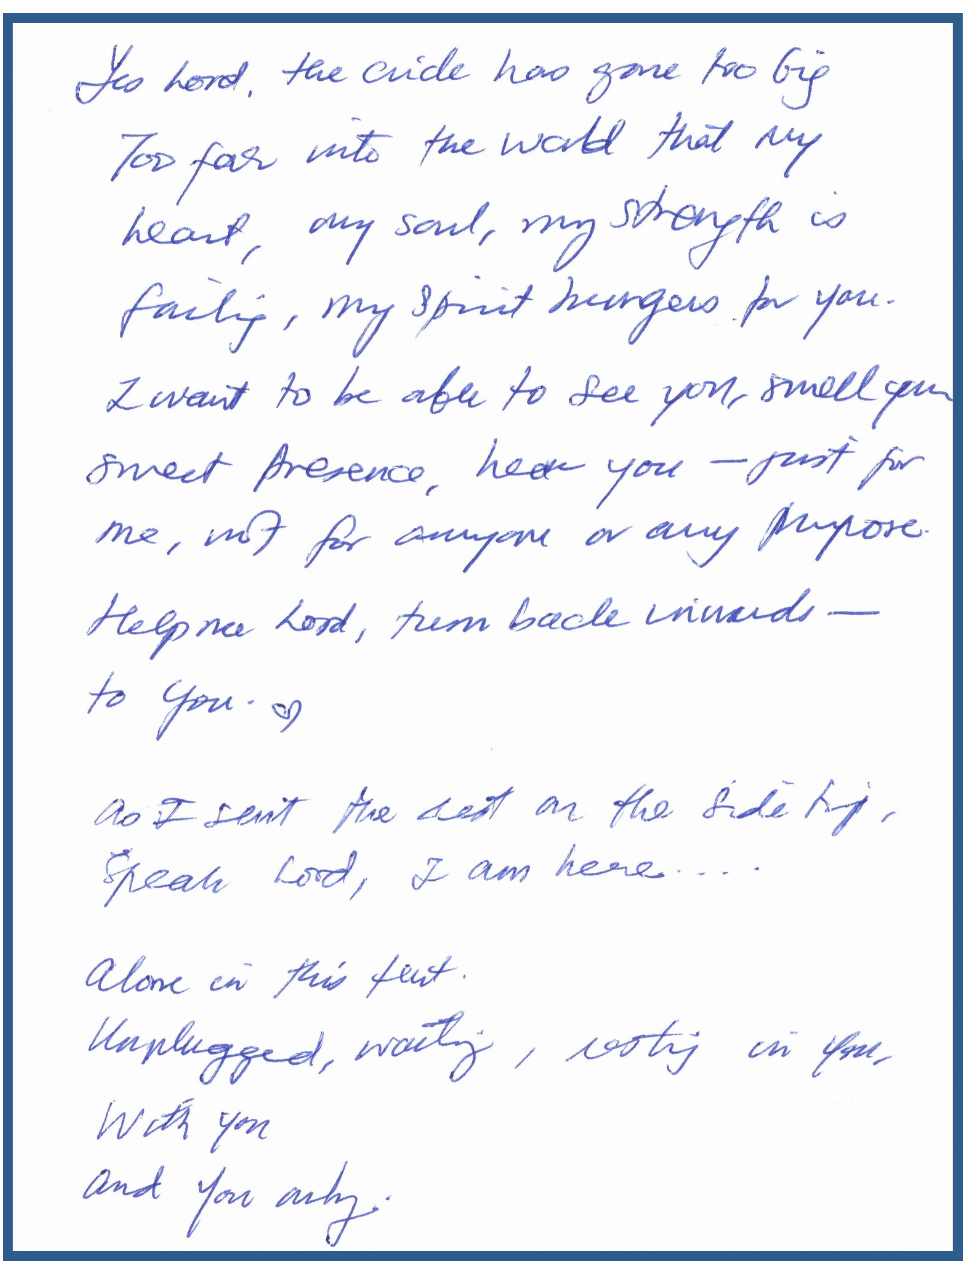 Yes Lord, the circle has gone too big
Too far into the world that my
heart, my soul, my strength is
failing, my Spirit hungers for you.
I want to be able to see you, smell your
sweet presence, hear you — just for
me, not for anyone or any purpose.
Help me Lord, turn back inwards —
to you.
As I sent the rest on the side trip,
Speak Lord, I am here....
Alone in this tent.
Unplugged, waiting, resting in you,
With you
and you only.